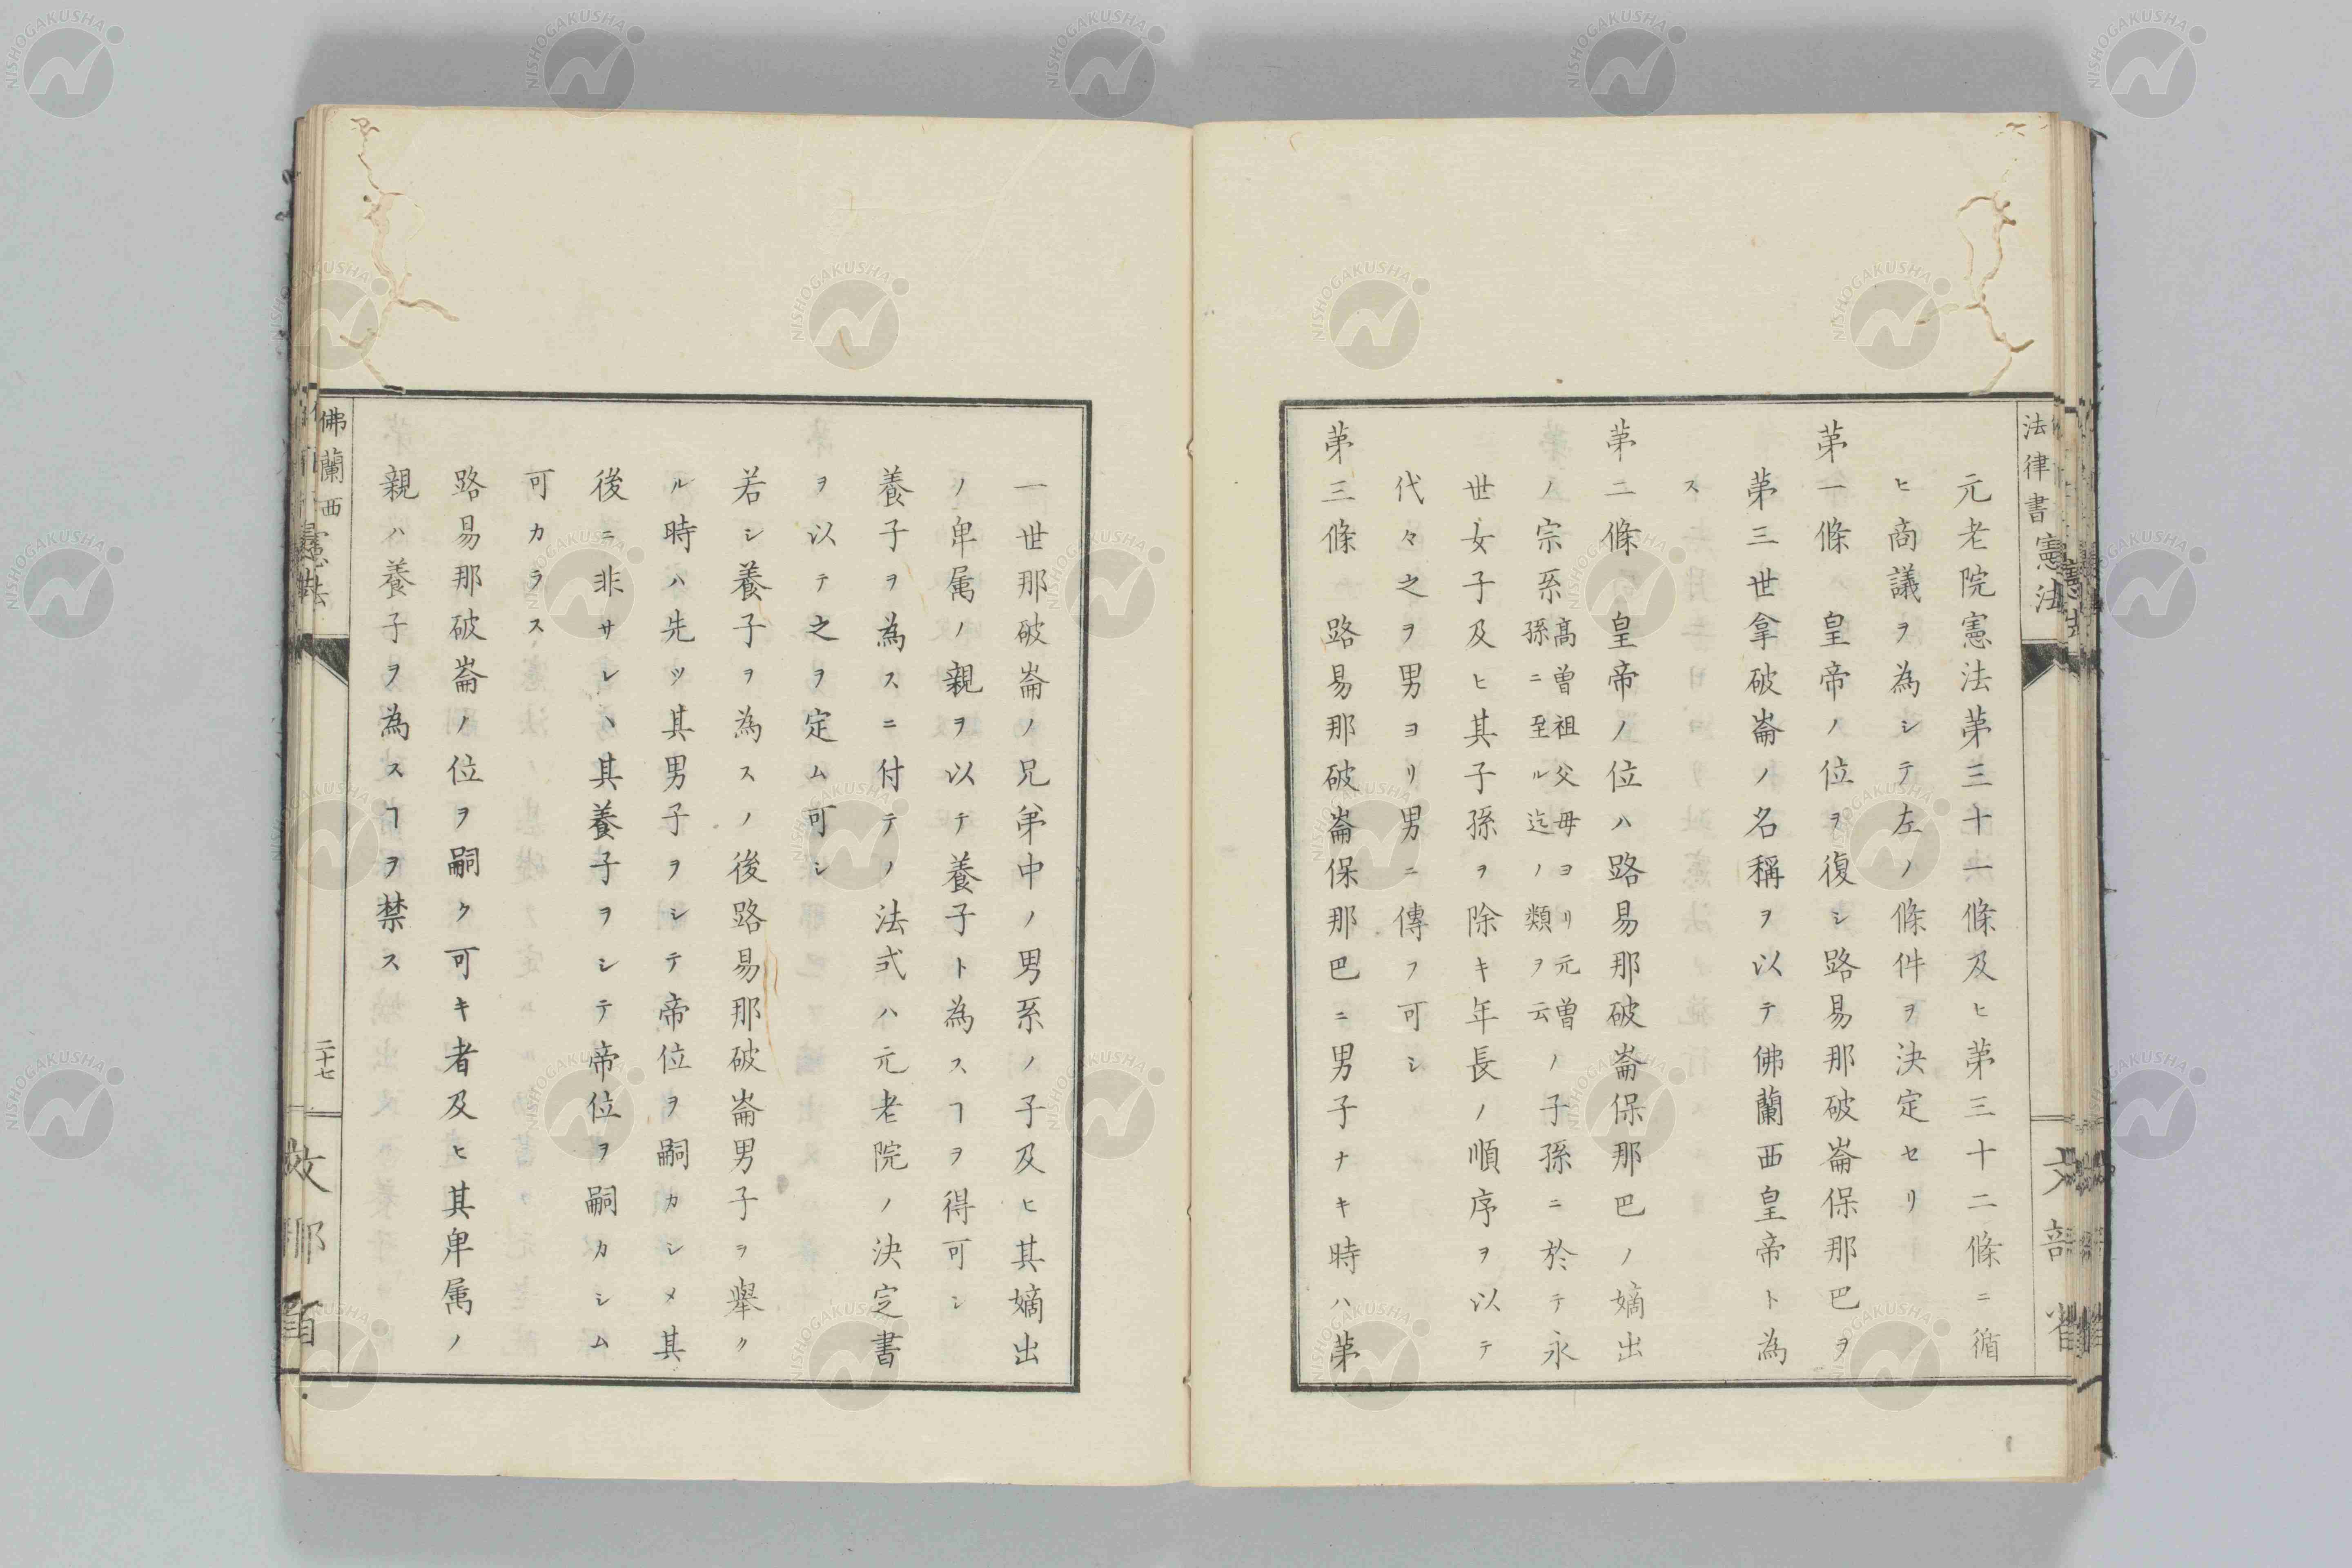 法律書憲法
元老院憲法苐三十一條及ヒ苐三十二條ニ循
ヒ商議ヲ為シテ左ノ條件ヲ決定セリ
苐一條 皇帝ノ位ヲ復シ路易那破崙保那巴ヲ
苐三世拿破崙ノ名稱ヲ以テ佛蘭西皇帝ト為
ス
苐二條 皇帝ノ位ハ路易那破崙保那巴ノ嫡出
ノ宗系髙曽祖父母ヨリ元曽ノ子孫ニ於テ永
孫ニ至ル迄ノ類ヲ云
世女子及ヒ其子孫ヲ除キ年長ノ順序ヲ以テ
代々之ヲ男ヨリ男ニ傳フ可シ
苐三條 路易那破崙保那巴ニ男子ナキ時ハ苐
文部省
一世那破崙ノ兄弟中ノ男系ノ子及ヒ其嫡出
ノ卑属ノ親ヲ以テ養子ト為スヿヲ得可シ
養子ヲ為スニ付テノ法式ハ元老院ノ決定書
ヲ以テ之ヲ定ム可シ
若シ養子ヲ為スノ後路易那破崙男子ヲ擧ク
ル時ハ先ツ其男子ヲシテ帝位ヲ嗣カシメ其
後ニ非サレハ其養子ヲシテ帝位ヲ嗣カシム
可カラス
路易那破崙ノ位ヲ嗣ク可キ者及ヒ其卑属ノ
親ハ養子ヲ為スヿヲ禁ス
佛蘭西憲法
二十七
NISHOGAKUSHA